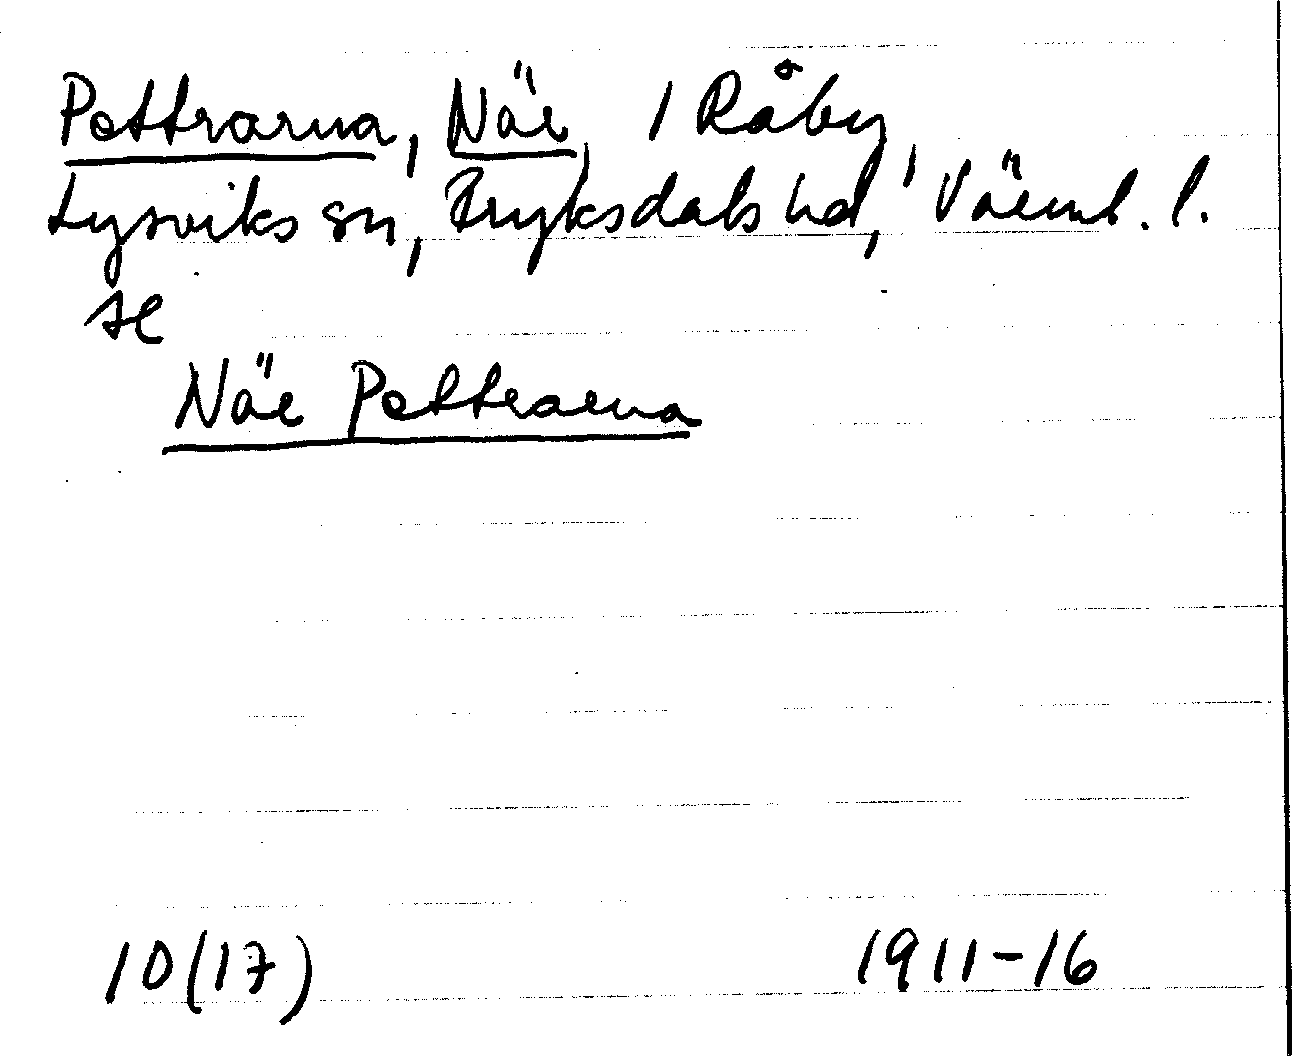 Pettrarna, När, / Råby,
Lysviks sn, Fryksdals hd, Värml. l.
se
När Pettrarna
10(17) 1911-16